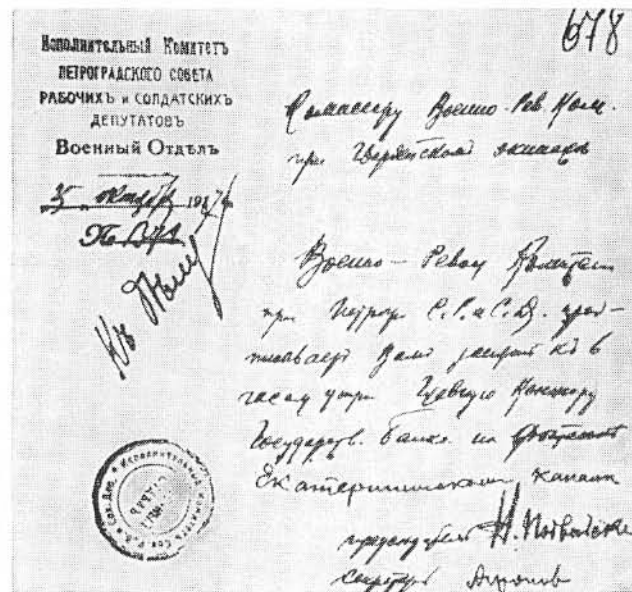 678
Исполнительный Комитетъ
ПЕТРОГРАДСКОГО СОВЕТА
РАБОЧИХЪ и СОЛДАТСКИХЪ
ДЕПУТАТОВЪ
Военный Отдѣлъ
25 октября 1917
Комиссару Военно-Рев. Ком.
при Гвардейском экипаже
Военно-Револ. Комитет
при Петрогр. С.Р. и С.Д. пред-
писывает Вам занять к 6
часам утра Контору
Государств. банка на
Екатерининском канале
председатель Н. Подвойский
Секретарь Антонов